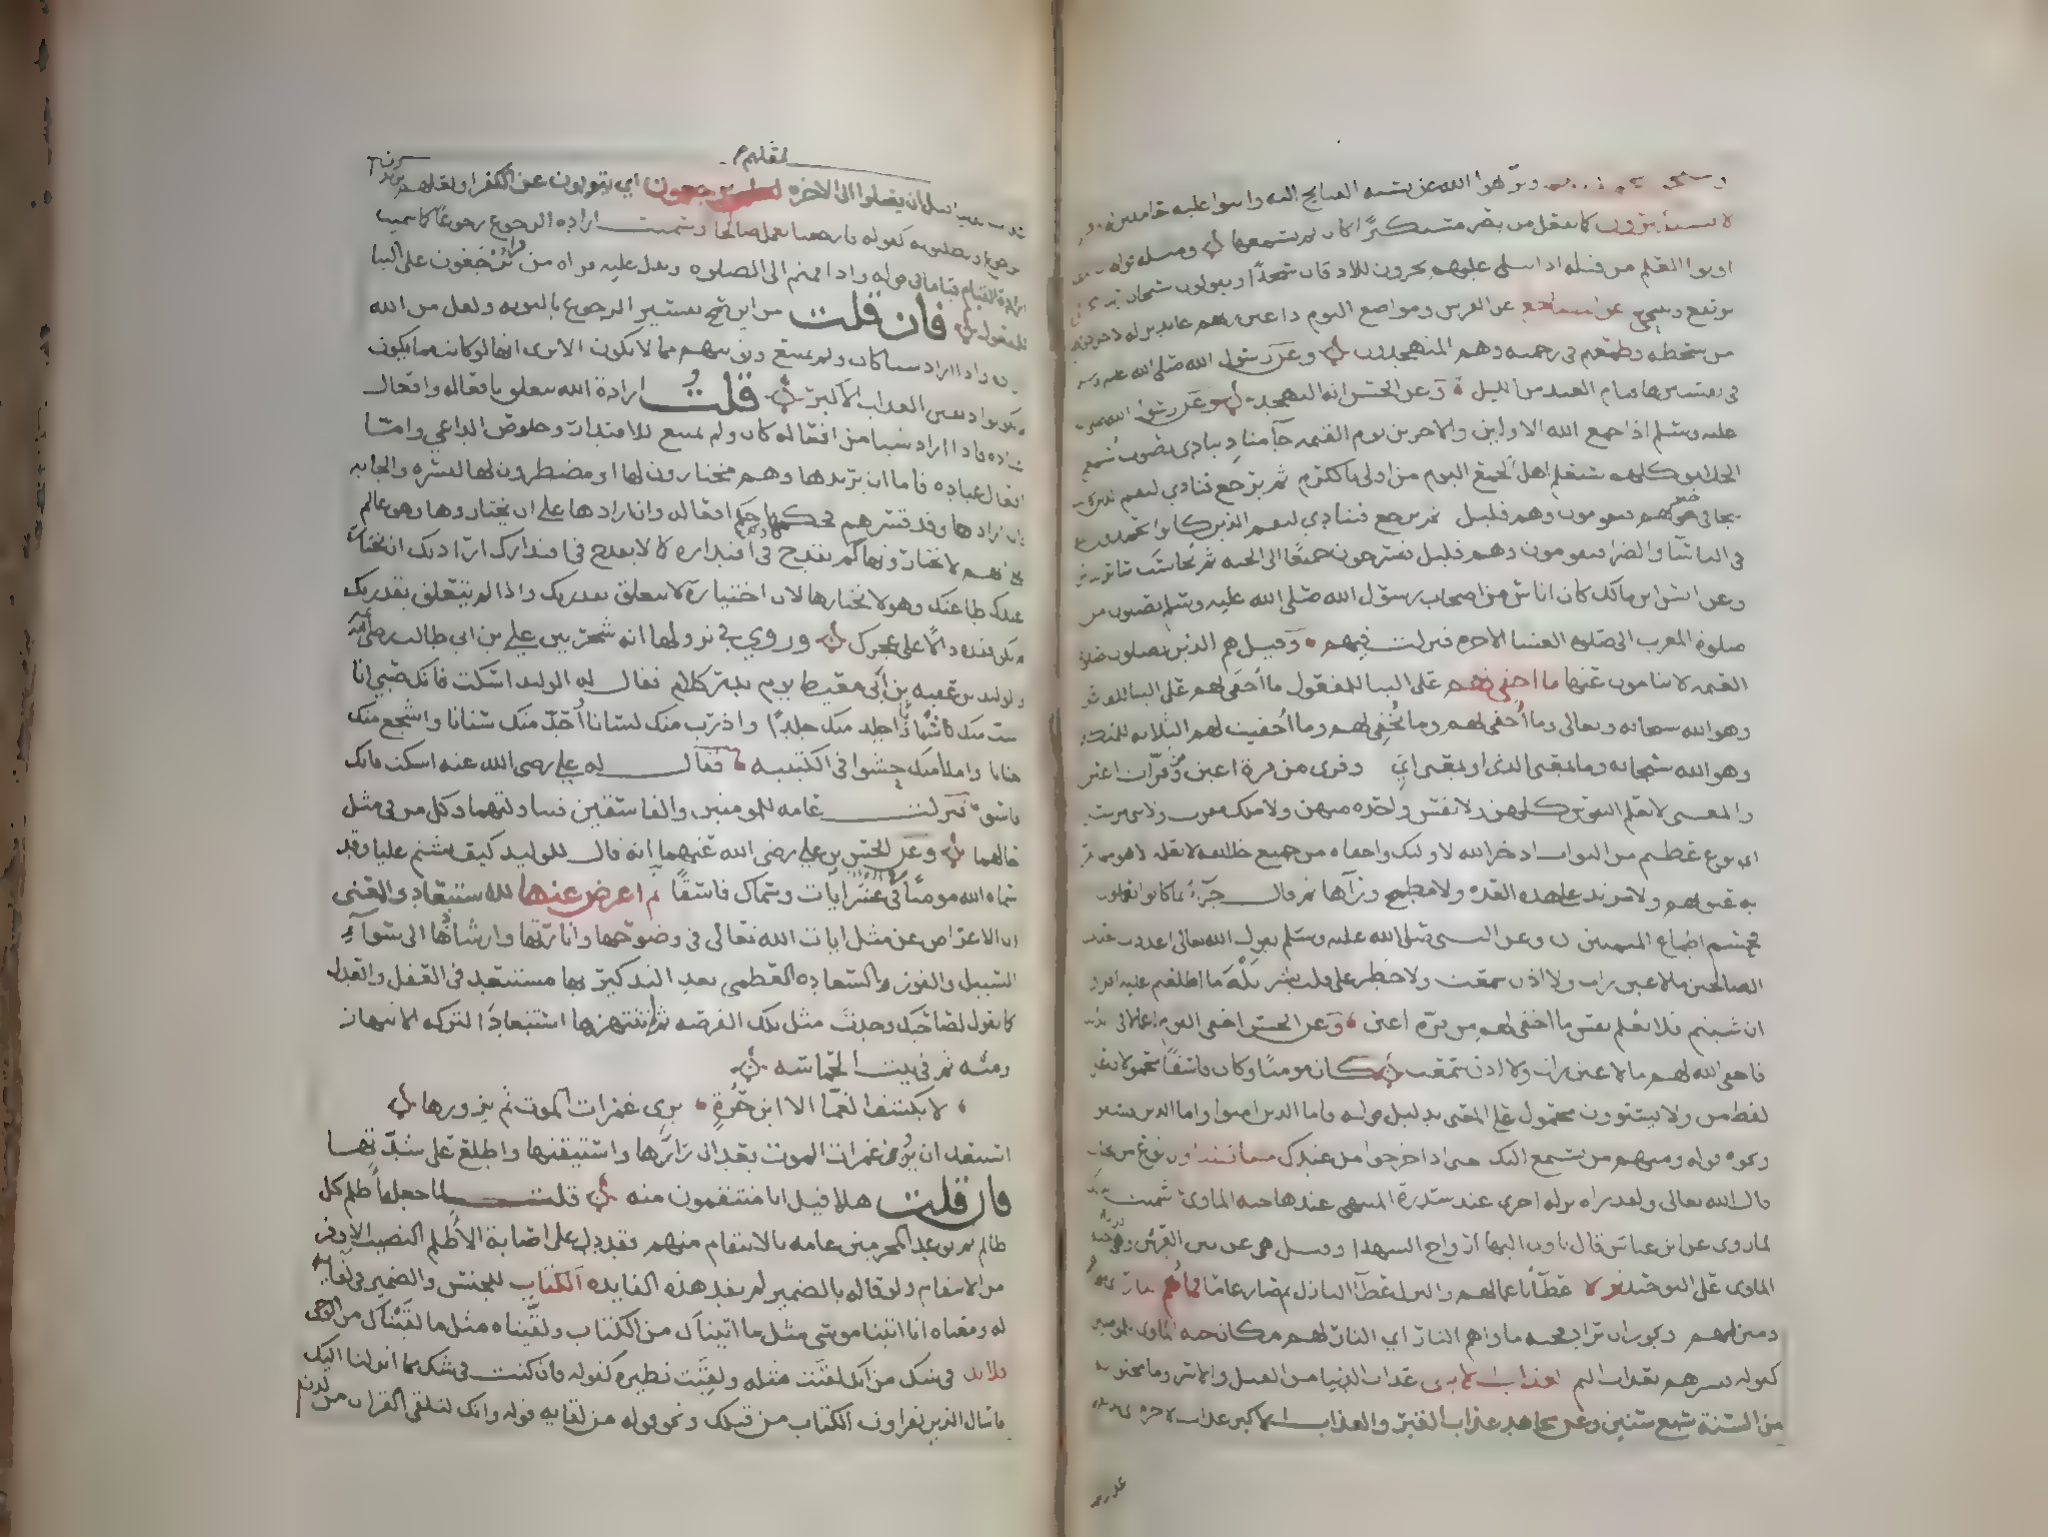 ونزهوا الله عن نسبه القبايح اليه واثنوا عليه حامدين
لا يستكبرون كما يفعل من يصر مستكبرا كان لم يسمعها ومثله قوله
اوتوا العلم من قبله اذا يتلى عليهم يخرون للاذقان سجدا ويقولون سبحان
ترتفع وتتنحى عن المضاجع عن الفرش ومواضع النوم داعين ربهم عابدين له لاجل خوفهم
من سخطه وطمعهم في رحمته وهم المتهجدون وعن رسول الله صلى الله عليه وسلم
في تفسيرها قيام العبد من الليل وعن الحسن انه التهجد وعن رسول الله صلى الله
عليه وسلم اذا جمع الله الاولين والاخرين يوم القيمه جآ مناد ينادي بصوت تسمع
الخلايق كلهم سيعلم اهل الجمع اليوم من اولى بالكرم ثم يرجع فينادي ليقم الذين كانت
تتجافى جنوبهم فيقومون وهم قليل ثم يرجع فينادي ليقم الذين كانوا يحمدون الله
في الباسآ والضرا فيقومون وهم قليل فيسرحون جميعا الى الجنه ثم يحاسب سائر الناس
وعن انس ابن مالك كان اناس من اصحاب رسول الله صلى الله عليه وسلم يصلون من
صلوة المغرب الى صلوة العشا الاخره فنزلت فيهم وقيل هم الذين يصلون صلوة
العتمه لا ينامون عنها ما اخفي لهم على البنا للمفعول ما اخفى لهم على البنا للفاعل
وهو الله سبحانه وتعالى وما اخفى لهم وما نخفي لهم وما اخفيت لهم الثلاثه للمتكلم
وهو الله سبحانه وما بمعنى الذي او بمعنى اي وقرى من قرة اعين وقرات اعين
والمعنى لا تعلم النفوس كلهن ولا نفس واحده منهن ولا ملك مقرب ولا نبي مرسل
اي نوع عظيم من الثواب ادخر الله لاوليك واخفاه من جميع خلايقه لا يعلمه الا هو مما تقر
به عيونهم ولا مزيد على هذه العده ولا مطمح ورآها ثم قال جزآء بما كانوا يعملون
فحسم اطماع المتمنين وعن النبي صلى الله عليه وسلم يقول الله تعالى اعددت لعبادي
الصالحين ما لا عين رات ولا اذن سمعت ولا خطر على قلب بشر بله ما اطلعتم عليه اقروا
ان شيتم فلا تعلم نفس ما اخفي لهم من قرة اعين وعن الحسن اخفى القوم اعمالا في الدنيا
فاخفى الله لهم ما لا عين رات ولا اذن سمعت كان مومنا وكان فاسقا محمولان على
لفظ من ولا يستوون محمول على المعنى بدليل قوله فاما الذين امنوا واما الذين فسقوا
ونحوه قوله ومنهم من يستمع اليك حتى اذا خرجوا من عندك جنات الماوى نوع من الجنان
قال الله تعالى ولقد راه نزله اخرى عند سدرة المنتهى عندها جنه الماوى سميت
لما روى عن ابن عباس قال تاوى اليها ارواح الشهدا وقيل هي عن يمين العرش
الماوى على التوحيد نزلا عطآ باعمالهم والنزل عطآ النازل ثم صار عاما فماواهم النار
ومنزلهم ويجوز ان يراد فجنه ماواهم النار اي النار لهم مكان جنه الماوى للمومنين
كقوله فبشرهم بعذاب اليم العذاب الادنى عذاب الدنيا من القتل والاسر وما محنوا به
من السنة سبع سنين وعن مجاهد عذاب القبر والعذاب الاكبر عذاب الاخره
لعلهم
ان يدخلوا الى الاخره لعلهم يرجعون اي يتوبون عن الكفر او لعلهم يريدون
الرجوع ويطلبونه كقوله فارجعنا نعمل صالحا وسميت اراده الرجوع رجوعا كما سميت
ارادة القيام قياما في قوله واذا قمتم الى الصلوه ويدل عليه قراه من قرا يرجعون على البنا
للمفعول فان قلت من اين صح تفسير الرجوع بالتوبه ولعل من الله
اراده واذا اراد شيا كان ولم يمتنع وتوبتهم مما لا يكون الا ترى انها لو كانت مما يكون
لم يكونوا ذايقين العذاب الاكبر قلت ارادة الله تتعلق بافعاله وافعال
عباده فاذا اراد شيا من افعاله كان ولم يمتنع للاقتدار وخلوص الداعي واما
افعال عباده فاما ان يريدها وهم مختارون لها او مضطرون اليها بقسره والجايه
فان ارادها وقد قسرهم فحكمها حكم افعاله وان ارادها على ان يختاروها وهو عالم
انهم لا يختارونها لم يقدح في اقتداره كما لا يقدح في اقتدارك ارادتك ان يختار
عبدك طاعتك وهو لا يختارها لان اختياره لا يتعلق بقدرتك واذا لم يتعلق بقدرتك
لم يكن فقده دالا على عجزك وروي في نزولها انه شجر بين علي بن ابي طالب رضي الله عنه
والوليد بن عقبه بن أبي معيط يوم بدر كلام فقال له الوليد اسكت فانك صبي انا
اشب منك شبابا واجلد منك جلدا واذرب منك لسانا وأحد منك سنانا واشجع منك
جنانا واملا منك حشوا في الكتيبه فقال له علي رضي الله عنه اسكت فانك
فاسق فنزلت عامه للمومنين والفاسقين فتناولتهما وكل من في مثل
حالهما وعن الحسن بن علي رضي الله عنهما انه قال للوليد كيف تشتم عليا وقد
سماه الله مومنا في عشر ايات وسماك فاسقا ثم اعرض عنها للاستبعاد والمعنى
ان الاعراض عن مثل ايات الله تعالى في وضوحها وانارتها وارشادها الى سوآء
السبيل والفوز بالسعاده العظمى بعد التذكير بها مستبعد في العقل والعدل
كما تقول لصاحبك وجدت مثل تلك الفرصه ثم لم تنتهزها استبعادا لتركه الانتهاز
ومنه ثم في بيت الحماسه
لا يكشف الغما الا ابن حُرةٍ يرى غمرات الموت ثم يزورها
استبعد ان يزور غمرات الموت بعد ان رآها واستيقنها واطلع على شدتها
فان قلت هلا قيل انا منتقمون منه قلت لما جعله أظلم كل
ظالم ثم توعد المجرمين عامه بالانتقام منهم فقد دل على اصابة الأظلم النصيب الاوفر
من الانتقام ولو قاله بالضمير لم يفد هذه الفايده الكتاب للجنس والضمير في لقايه
له ومعناه انا اتينا موسى مثل ما اتيناك من الكتاب ولقيناه مثل ما لقيناك من الوحي
فلا تكن في شك من انك لقيت مثله ولقيت نظيره كقوله فان كنت في شك مما انزلنا اليك
فاسال الذين يقراون الكتاب من قبلك ونحو قوله من لقايه قوله وانك لتلقى القران من لدن